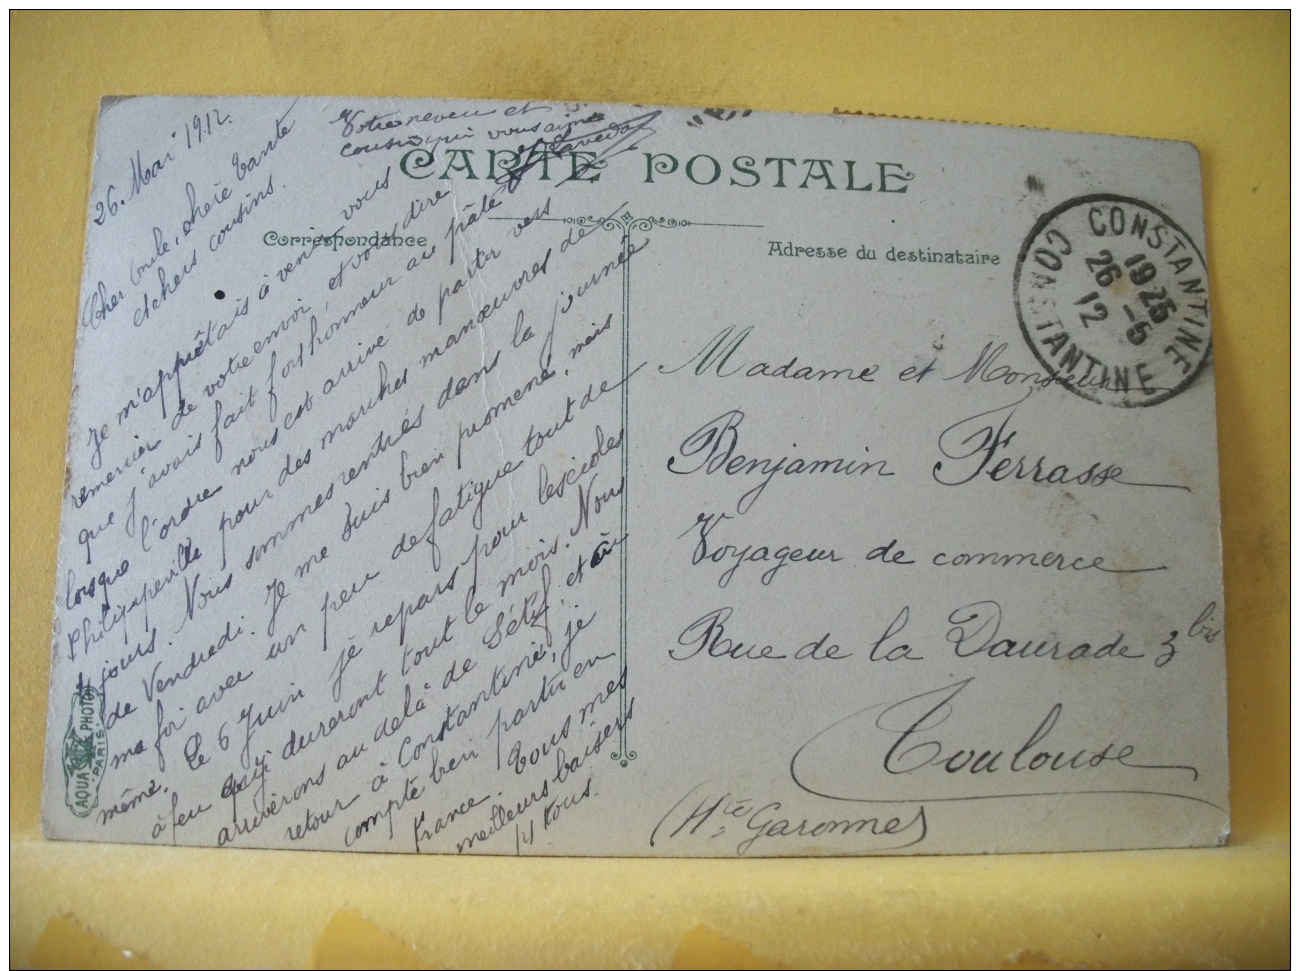 26. Mai 1912.
Cher oncle, chère tante
et chers cousins.
Je m'apprêtais à venir vous
remercier de votre envoi et vous dire
que j'avais fait fort honneur au pâté
lorsque l'ordre nous est arrivé de partir vers
Philippeville pour des marches manœuvres de
4 jours. Nous sommes rentrés dans la journée
de Vendredi. Je me suis bien promené, mais
ma foi avec un peu de fatigue tout de
même. Le 6 Juin je repars pour les écoles
à feu qui dureront tout le mois. Nous
arriverons au delà de Sétif, et au
retour à Constantine, je
compte bien partir en
France. Tous mes
meilleurs baisers
à tous.
Votre neveu et
cousin qui vous aime
CARTE POSTALE
Correspondance
Adresse du destinataire
CONSTANTINE
CONSTANTINE
1925
26 -5
12
Madame et Monsieur
Benjamin Ferrasse
Voyageur de commerce
Rue de la Daurade 3 bis
Toulouse
(Hte Garonne)
AQUA PHOTO
PARIS